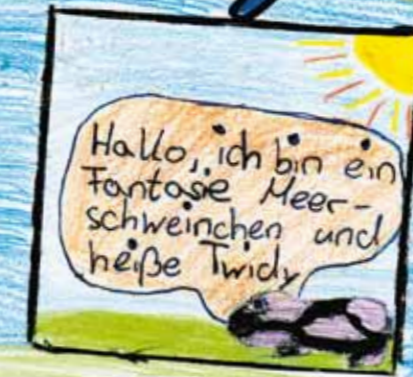 Hallo, ich bin ein
Fantasie Meer-
schweinchen und
heiße Twidy